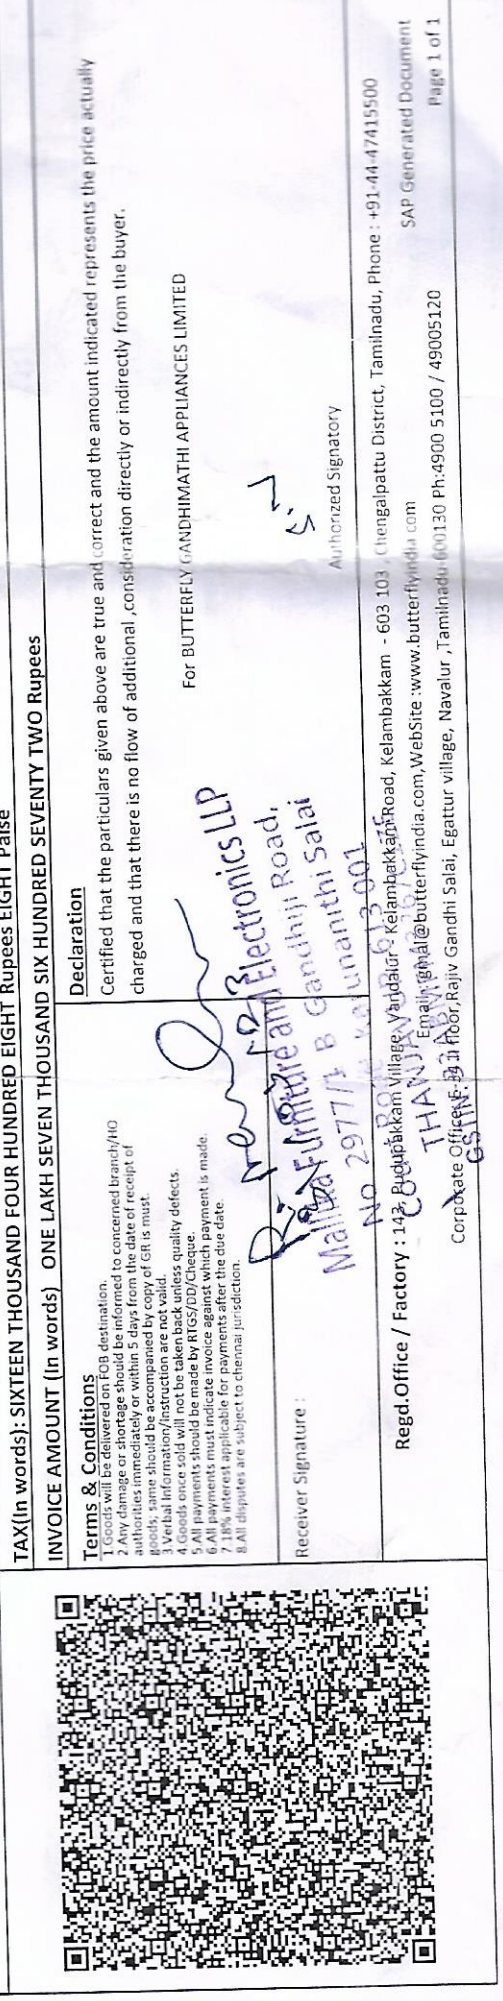 TAX(In words): SIXTEEN THOUSAND FOUR HUNDRED EIGHT Rupees EIGHT Paise
INVOICE AMOUNT (In words) ONE LAKH SEVEN THOUSAND SIX HUNDRED SEVENTY TWO Rupees
Terms & Conditions
1.Goods will be delivered on FOB destination.
2.Any damage or shortage should be informed to concerned branch/HO
authorities immediately or within 5 days from the date of receipt of
goods; same should be accompanied by copy of GR is must.
3.Verbal Information/Instruction are not valid.
4.Goods once sold will not be taken back unless quality defects.
5.All payments should be made by RTGS/DD/Cheque.
6.All payments must indicate invoice against which payment is made.
7.18% interest applicable for payments after the due date.
8.All disputes are subject to chennai jurisdiction.
Receiver Signature :
Declaration
Certified that the particulars given above are true and correct and the amount indicated represents the price actually
charged and that there is no flow of additional ,consideration directly or indirectly from the buyer.
For BUTTERFLY GANDHIMATHI APPLIANCES LIMITED
Authorized Signatory
Furniture and Electronics LLP
No 2977/1 B Gandhiji Road,
Salai
THANJAVUR 613 001
GSTIN:
Regd.Office / Factory : 143, Pudupakkam Village, Vandalur - Kelambakkam Road, Kelambakkam - 603 103 , Chengalpattu District, Tamilnadu, Phone : +91-44-47415500
Email :gmal@butterflyindia.com,WebSite :www.butterflyindia com
Corporate Office: Floor,Rajiv Gandhi Salai, Egattur village, Navalur ,Tamilnadu-600130 Ph:4900 5100 / 49005120
SAP Generated Document
Page 1 of 1